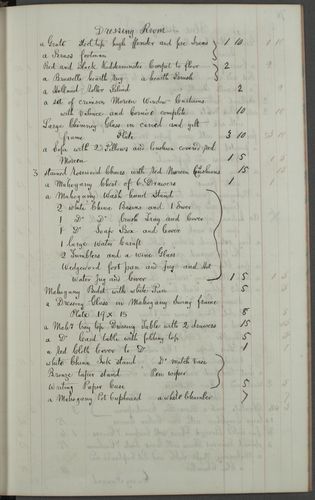 Dressing Room
a Grate Hot top high ffender and fire Irons 1 10
a Brass footman
Red and Black Kidderminster Carpet to floor 2
a Brussells hearth Rug a hearth Brush
a Holland Roller Blind 2
a set of crimson Moreen Window Curtains
with Valance and Cornice complete 10
Large Chimney Glass in carved and gilt
frame Plate 3 10
a Sofa with 2 Pillows and cushion covered red
Moreen 1 5
3 stained Rosewood Chairs with Red Moreen Cushions 15
a Mahogany Chest of 6 Drawers 1
a Mahogany Wash hand Stand
2 White China Basins and 1 Ewer
1 Do Do Brush Tray and Cover
1 Do Soape Box and Cover
1 large Water Caraft
2 Tumblers and a wine Glass
Wedgewood foot pan and Jug and Hot
Water Jug and Cover 1 5
Mahogany Bidet with white Pan 5
a Dressing Glass in Mahogany Swing frame
Plate 19 x 15 8
a Mahy tray top Dressing Table with 2 Drawers 15
a Do Card table with folding top 5
a Red Cloth Cover to Do 1
White China Ink stand Do match Case
Bronze taper stand Pen wiper
Writing Paper Case 5
a Mahogany Pot Cupboard a white Chamber 7